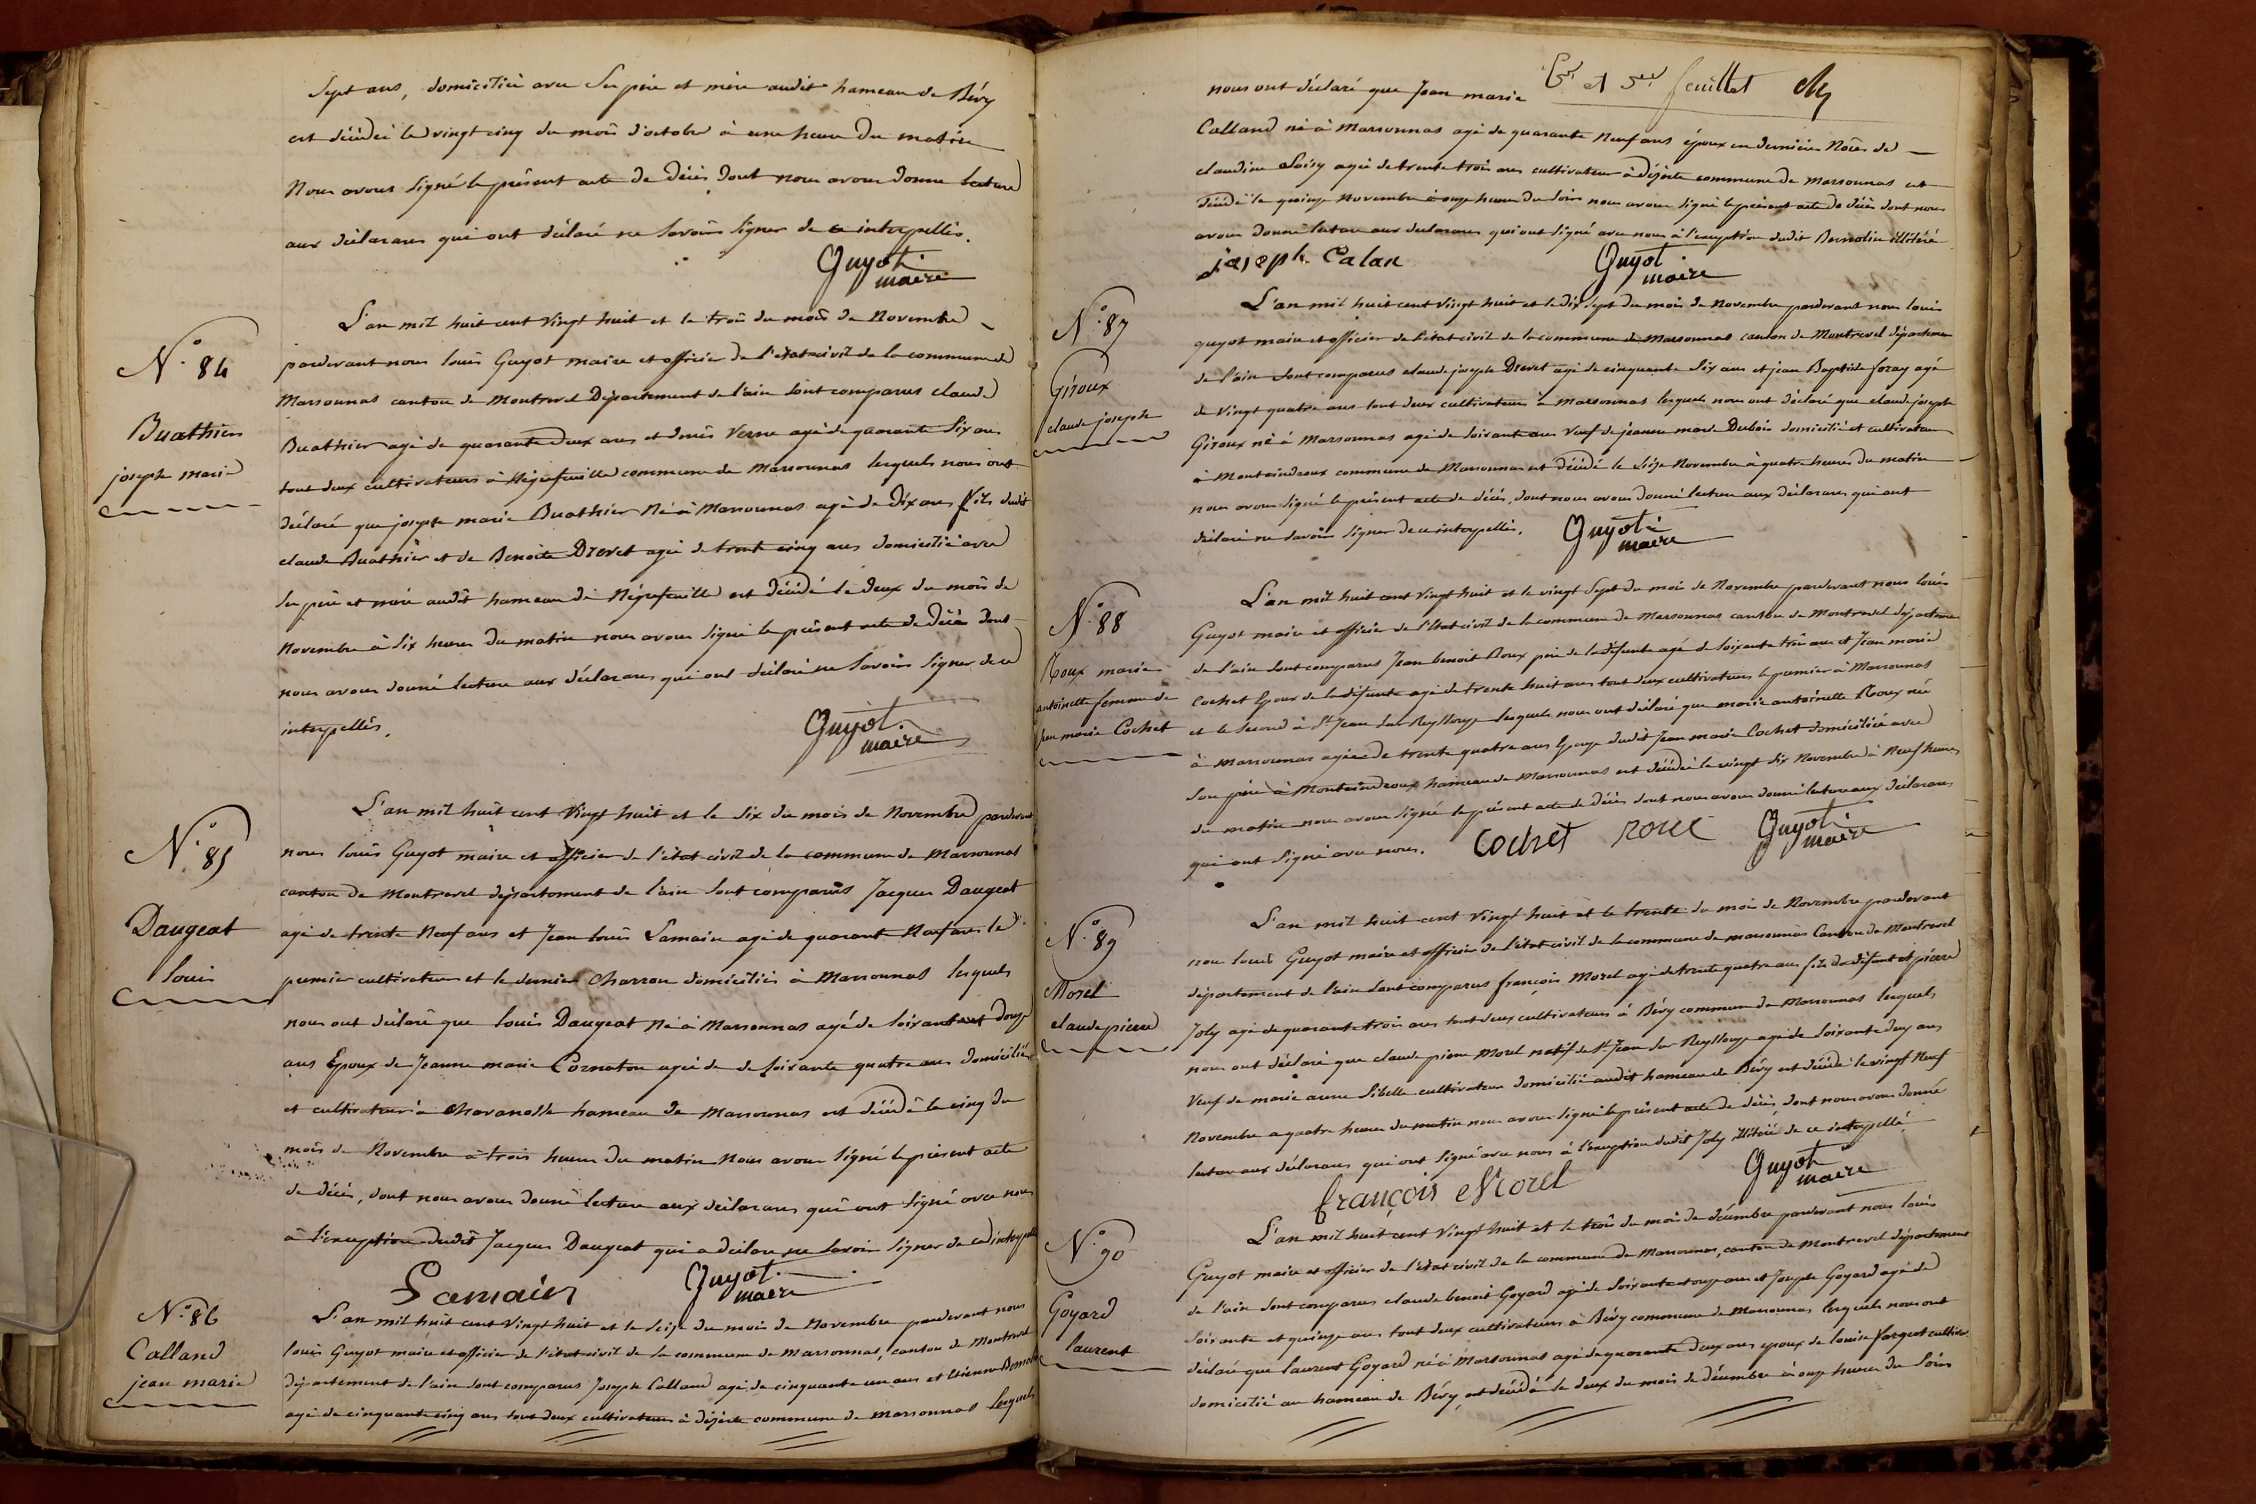 Sept ans, domiciliée avec ses père et mère audit hameau de Bévy
est décédée le vingt cinq du mois d'octobre à une heure du matin
Nous avons signé le présent acte de décès dont nous avons donné lecture
aux déclarans qui ont déclaré ne savoir signer de ce interpellés.
Guyot
maire
N.° 84
Buathier
joseph marie
L'an mil huit cent vingt huit et le trois du mois de Novembre
pardevant nous louis Guyot maire et officier de l'état civil de la commune de
Marsonnas canton de Montrevel Département de l'ain sont comparus claude
Buathier agé de quarante deux ans et denis Verne agé de quarante six ans
tout deux cultivateurs à Négrefeuille commune de Marsonnas lesquels nous ont
déclaré que joseph marie Buathier Né à Marsonnas agé de Dix ans fils dudit
claude Buathier et de Benoite Drevet agée de trente cinq ans domicilié avec
ses père et mère audit hameau de Négrefeuille est décédé le deux du mois de
Novembre à six heures du matin nous avons signé le présent acte de décès dont
nous avons donné lecture aux déclarans qui ont déclaré ne savoir signer de ce
interpellés.
Guyot
maire
N.° 85
Daugeat
louis
L'an mil huit cent vingt huit et le six du mois de Novembre pardevant
nous louis Guyot maire et officier de l'état civil de la commune de Marsonnas
canton de Montrevel département de l'ain sont comparus Jacques Daugeat
agé de trente Neuf ans et Jean louis Lamain agé de quarant Neuf ans le
premier cultivateur et le dernier charron domiciliés à Marsonnas lesquels
nous ont déclaré que louis Daugeat Né à Marsonnas agé de soixante et douze
ans Epoux de Jeanne marie Cornaton agée de de soixante quatre ans domicilié
et cultivateur à chavanosse hameau de Marsonnas est décédé le cinq du
mois de Novembre à trois heures du matin Nous avons signé le présent acte
de décès, dont nous avons donné lecture aux déclarans qui ont signé avec nous
à l'exception dudit Jacques Daugeat qui a déclaré ne savoir signer de ce interpellé
Lamain Guyot
maire
N.° 86
Calland
jean marie
L'an mil huit cent vingt huit et le seize du mois de Novembre pardevant nous
louis Guyot maire et officier de l'état civil de la commune de Marsonnas, canton de Montrevel
département de l'ain sont comparus Joseph Calland agé de cinquante un ans et Etienne
agé de cinquante cinq ans tout deux cultivateurs à commune de Marsonnas lesquels
et 5 feuillet
nous ont déclaré que Jean marie
Calland né à Marsonnas agé de quarante Neuf ans époux en dernières Nôces de
claudine Loisy agée de trente trois ans cultivateur à commune de Marsonnas est
décédé le quinze Novembre à onze heures du soir nous avons signé le présent acte de décès dont nous
avons donné lecture aux déclarans qui ont signé avec nous à l'exception dudit illitéré
joseph Calan Guyot
maire
N.° 87
Giroux
claude joseph
L'an mil huit cent vingt huit et le dix sept du mois de Novembre pardevant nous louis
guyot maire et officier de l'état civil de la commune de Marsonnas canton de Montrevel département
de l'ain sont comparus claude joseph Drevet agé de cinquante six ans et jean Baptiste foray agé
de vingt quatre ans tout deux cultivateurs à Marsonnas lesquels nous ont déclaré que claude joseph
Giroux né à Marsonnas agé de soixante ans Veuf de jeanne marie Dubois domicilié et cultivateur
à Montaindroux commune de Marsonnas est décédé le seize Novembre à quatre heures du matin
nous avons signé le présent acte de décès, dont nous avons donné lecture aux déclarans qui ont
déclaré ne savoir signer de ce interpellés. Guyot
maire
N.° 88
Roux marie
antoinette femme de
jean marie Cochet
L'an mil huit cent vingt huit et le vingt sept du mois de Novembre pardevant nous louis
Guyot maire et officier de l'Etat civil de la commune de Marsonnas canton de Montrevel département
de l'ain sont comparus Jean benoit Roux père de la défunte agé de soixante trois ans et Jean marie
Cochet Epoux de la défunte agé de trente huit ans tout deux cultivateurs le premier à Marsonnas
et le second à St Jean sur Reyssouze lesquels nous ont déclaré que marie antoinette Roux née
à Marsonnas agée de trente quatre ans Epouse dudit Jean marie Cochet domiciliée avec
son père à Montaindroux hameau de Marsonnas est décédée le vingt six Novembre à Neuf heures
du matin nous avons signé le présent acte de décès dont nous avons donné lecture aux déclarans
qui ont signé avec nous. Cochet roux Guyot
maire
N.° 89
Morel
claude pierre
L'an mil huit cent vingt huit et le trente du mois de Novembre pardevant
nous louis Guyot maire et officier de l'état civil de la commune de marsonnas Canton de Montrevel
département de l'ain sont comparus françois Morel agé de trente quatre ans fils du défunt et pierre
Joly agé de quarante trois ans tout deux cultivateurs à Bévy commune de Marsonnas lesquels
nous ont déclaré que claude pierre Morel natif de St Jean sur Reyssouze agé de soixante deux ans
Veuf de marie anne Sibelle cultivateur domicilié audit hameau de Bévy est décédé le vingt Neuf
Novembre à quatre heures du matin nous avons signé le présent acte de décès, dont nous avons donné
lecture aux déclarans qui ont signé avec nous à l'exception dudit Joly illitéré de ce interpellé.
françois Morel Guyot
maire
N.° 90
Goyard
laurent
L'an mil huit cent vingt huit et le trois du mois de décembre pardevant nous louis
Guyot maire et officier de l'état civil de la commune de Marsonnas, canton de Montrevel département
de l'ain sont comparus claude benoit Goyard agé de soixante et onze ans et Joseph Goyard agé de
soixante et quinze ans tout deux cultivateurs à Bévy commune de Marsonnas lesquels nous ont
déclaré que laurent Goyard né à Marsonnas agé de quarante deux ans epoux de louise fargeot cultivateur
domicilié au hameau de Bévy est décédé le deux du mois de décembre à onze heures du soir